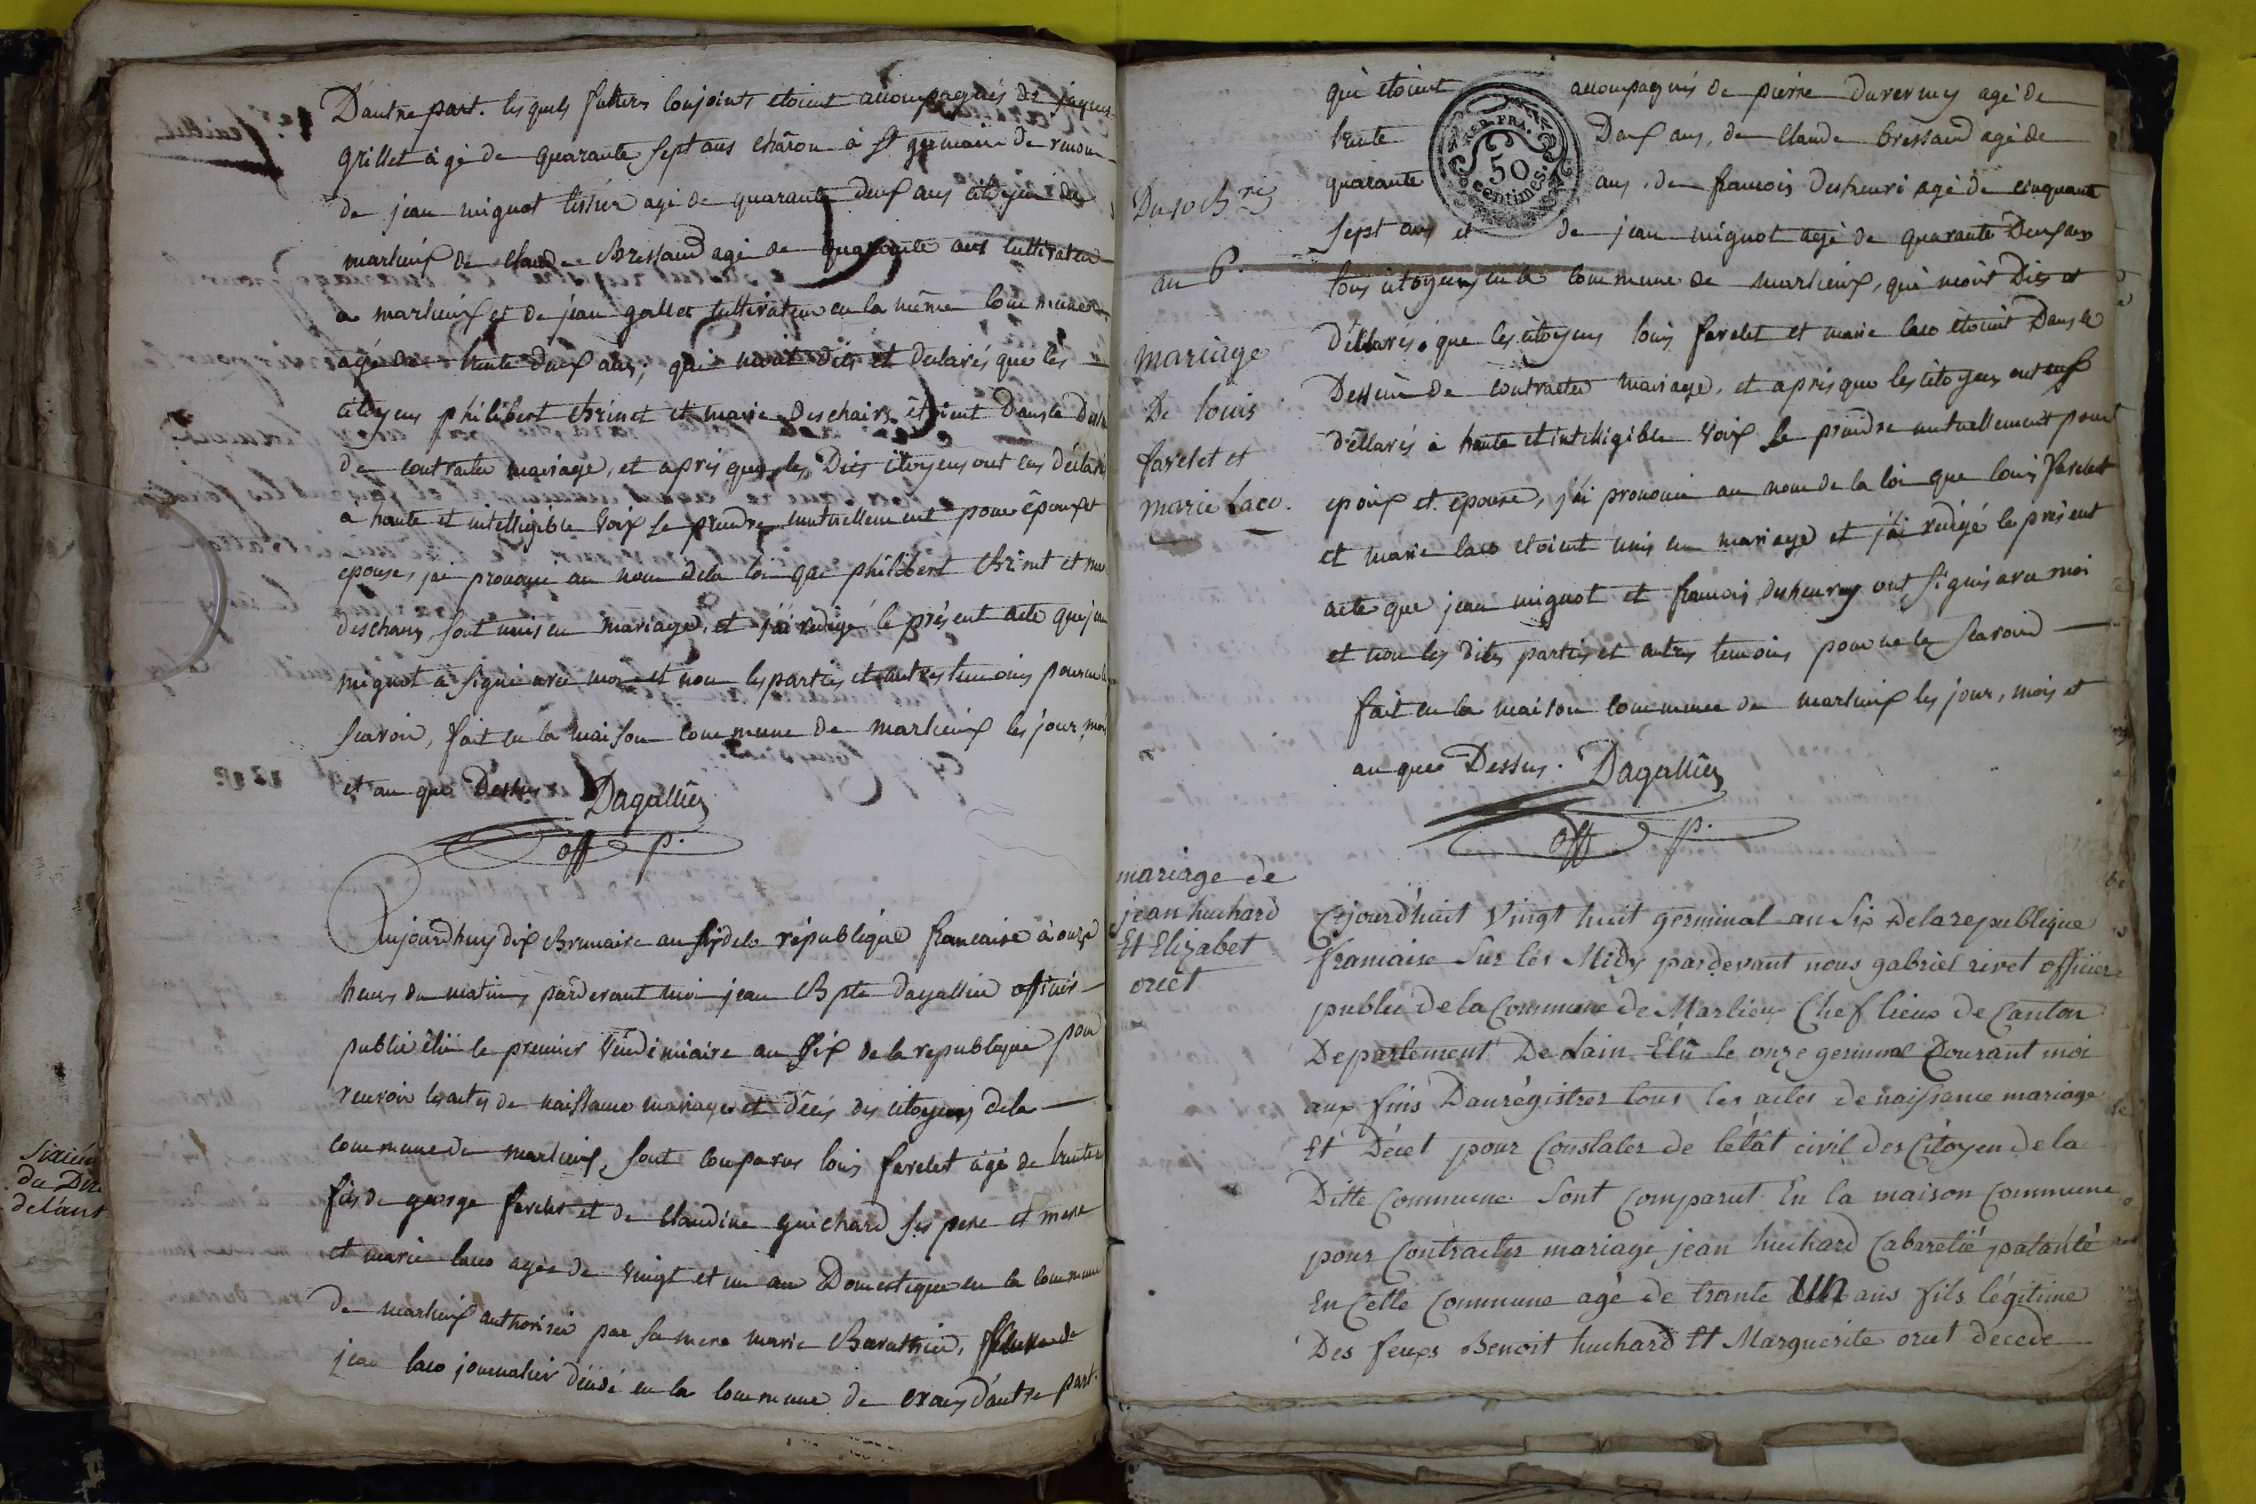 D'autre part. lesquels futurs Conjoints etoient accompagnés de jaques
Grillet âgé de quarante sept ans châron à St germain de renon
de jean mignot tissier agé de quarante deux ans citoyen de
marlieux de claude Bressand agé de quarante ans cultivateur
a marlieux et de jean gallet cultivateur en la même commune
agé de trente deux ans, qui m'ont dits et declarés que les
citoyens philibert Chrinet et marie Deschairs étoient Dans le Dess
de contracter mariage, et après que les Dits citoyens ont eus déclaré
à haute et intelligible Voix se prendre mutuellement pour époux et
epouse, jai prononcé au nom dela loi que philibert Chrinet et ma
deschairs, sont unis en mariage, et j'ai redigé le présent acte que jean
mignot a signé avec moi et non les parties et autres temoins pour ne le
scavoir, fait en la maison commune de marlieux les jour, mois
et an que Dessus Dagallier
off p.
Aujourdhuy dix Brumaire an six dela république francaise à onze
heures du matin, pardevant moi jean Bpte Dagallier officier
public élu le premier Vendémiaire an Six de la republique pour
recevoir les actes de naissance mariages et décès des citoyens dela
commune de marlieux, sont comparus louis favelet agé de trente
fils de george favelet et de Claudine guichard ses pere et mere
et marie laco agée de vingt et un an Domestique en la commune
de marlieux authorisée par sa mere marie Barathier,
jean laco journalier décédé en la commune de crans d'autre part.
sixiém
du D
de l'an
Du 10 Bre
an 6.
mariage
De louis
favelet et
marie Laco.
qui etoient accompagnés de pierre Duverney agé de
trente Deux ans, de Claude bressand agé de
quarante ans, de francois Deshenri agé de cinquante
sept ans et de jean mignot agé de quarante Deux ans
tous citoyens en la commune de marlieux, qui m'ont Dits et
déclarés, que les citoyens louis favelet et marie laco etoient Dans le
Dessein de contracter mariage, et après que les citoyens ont eus
déclarés à haute et intelligible Voix se prendre mutuellement pour
epoux et epouse, j'ai prononcé au nom de la loi que louis favelet
et marie laco etoient unis en mariage et j'ai redigé le présent
acte que jean mignot et francois deshenry ont signés avec moi
et non les dites parties et autres temoins pour ne le scavoir
fait en la maison commune de marlieux les jour, mois et
an que Dessus. Dagallier
off p.
REP. FRA.
50
centimes
mariage de
jean huchard
Et Elizabet
oriet
Cejourdhuit Vingt huit germinal an Six Dela republique
francaise Sur les Midy pardevant nous gabriel rivet officier
public de la Commune de Marlieux Chef lieux de Canton
Departement De Lain Elû le onze germinal Courant moi
aux fins Danrégistrer tous les actes de naissance mariage
Et Décet pour Constater de létât civil des Citoyen de la
Ditte Commune Sont Comparut En la maison Commune
pour Contracter mariage jean huchard Cabaretié patanté
En Cette Commune agé de trante UN ans fils légitime
Des feux Benoit huchard Et Marguerite oriet decede